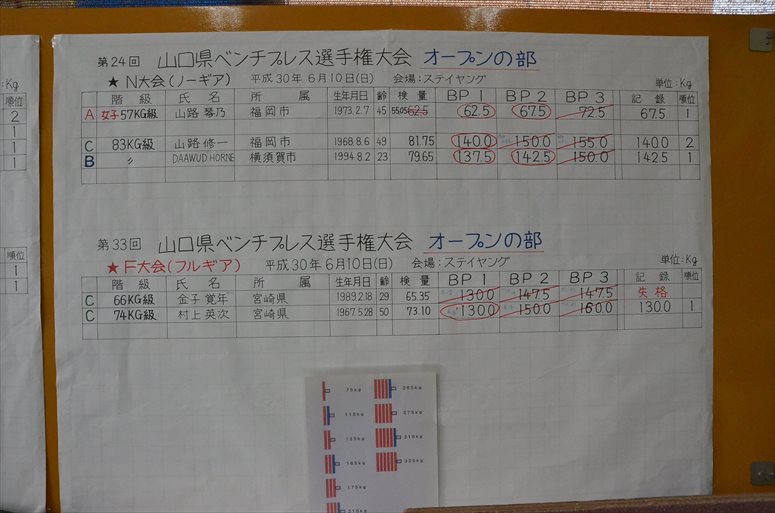 :Kg
順位
2
1
1
1
順位
1
1
第24回 山口県ベンチプレス選手権大会 オープンの部
★N大会(ノーギア) 平成30年6月10日(日) 会場:ステイヤング 単位:Kg
階級 氏名 所属 生年月日 齢 検量 BP1 BP2 BP3 記録 順位
A 女子57KG級 山路琴乃 福岡市 1973.2.7 45 55.05 62.5 62.5 67.5 72.5 67.5 1
C 83KG級 山路修一 福岡市 1968.8.6 49 81.75 140.0 150.0 155.0 140.0 2
B 〃 DAAWUD HORNE 横須賀市 1994.8.2 23 79.65 137.5 142.5 150.0 142.5 1
第33回 山口県ベンチプレス選手権大会 オープンの部
★F大会(フルギア) 平成30年6月10日(日) 会場:ステイヤング 単位:Kg
階級 氏名 所属 生年月日 齢 検量 BP1 BP2 BP3 記録 順位
C 66KG級 金子覚年 宮崎県 1989.2.18 29 65.35 130.0 147.5 147.5 失格
C 74KG級 村上英次 宮崎県 1967.5.28 50 73.10 130.0 150.0 160.0 130.0 1
75kg 265kg
115kg 275kg
165kg 320kg
175kg